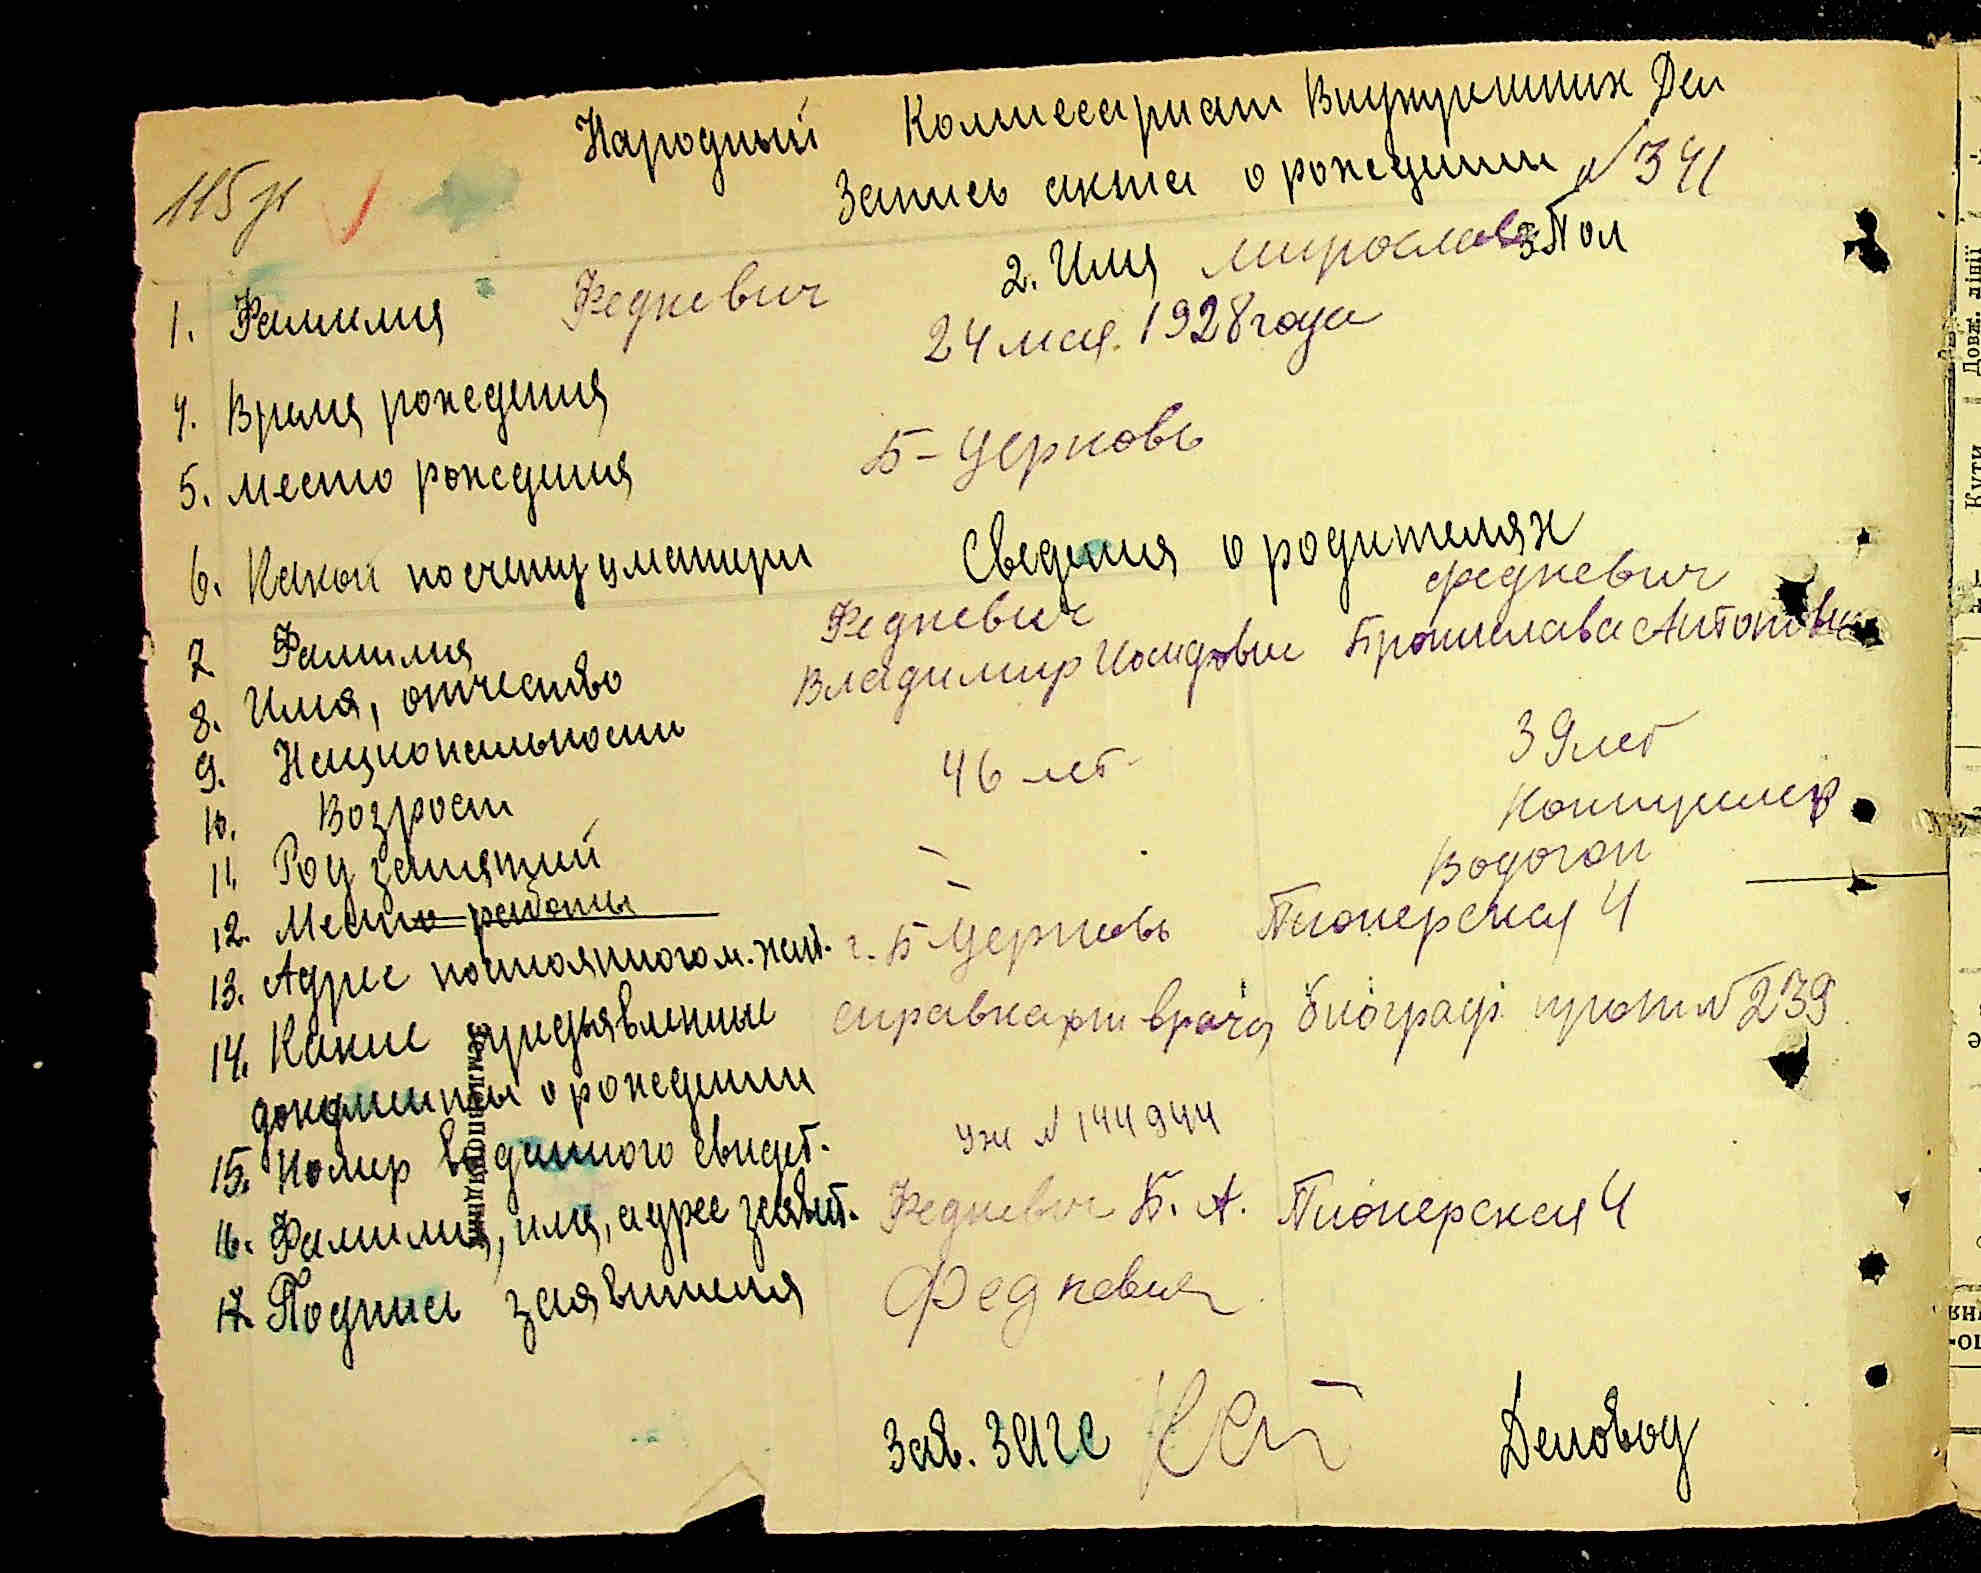 115 ж
Народный Комиссариат Внутренних Дел
Запись акта о рождении № 341
1. Фамилия Федкевич 2. Имя Мирослава 3. Пол
4. Время рождения 24 мая 1928 года
5. Место рождения Б-Церковь
6. Какой по счету у матери Сведения о родителях
7 Фамилия Федкевич Федкевич
8. Имя, отчество Владимир Бронислава Антоновна
9. Национальность
10. Возраст 46 лет 39 лет
11. Род занятий -
12. Место работы - Водоган
13. Адрес постоянного м. жит. г. Б Церковь Пионерская 4
14. Какие предъявленные справка от врача, биограф. прот № 239
документы о рождении
15. Номер выданного свидет. УЖ № 144944
16. Фамилия, имя, адрес заявит. Федкевич Б. А. Пионерская 4
17. Подпись заявителя Федкевич
Зав. ЗАГС Деловод
Землепорядник
Довж. лінії
Кути